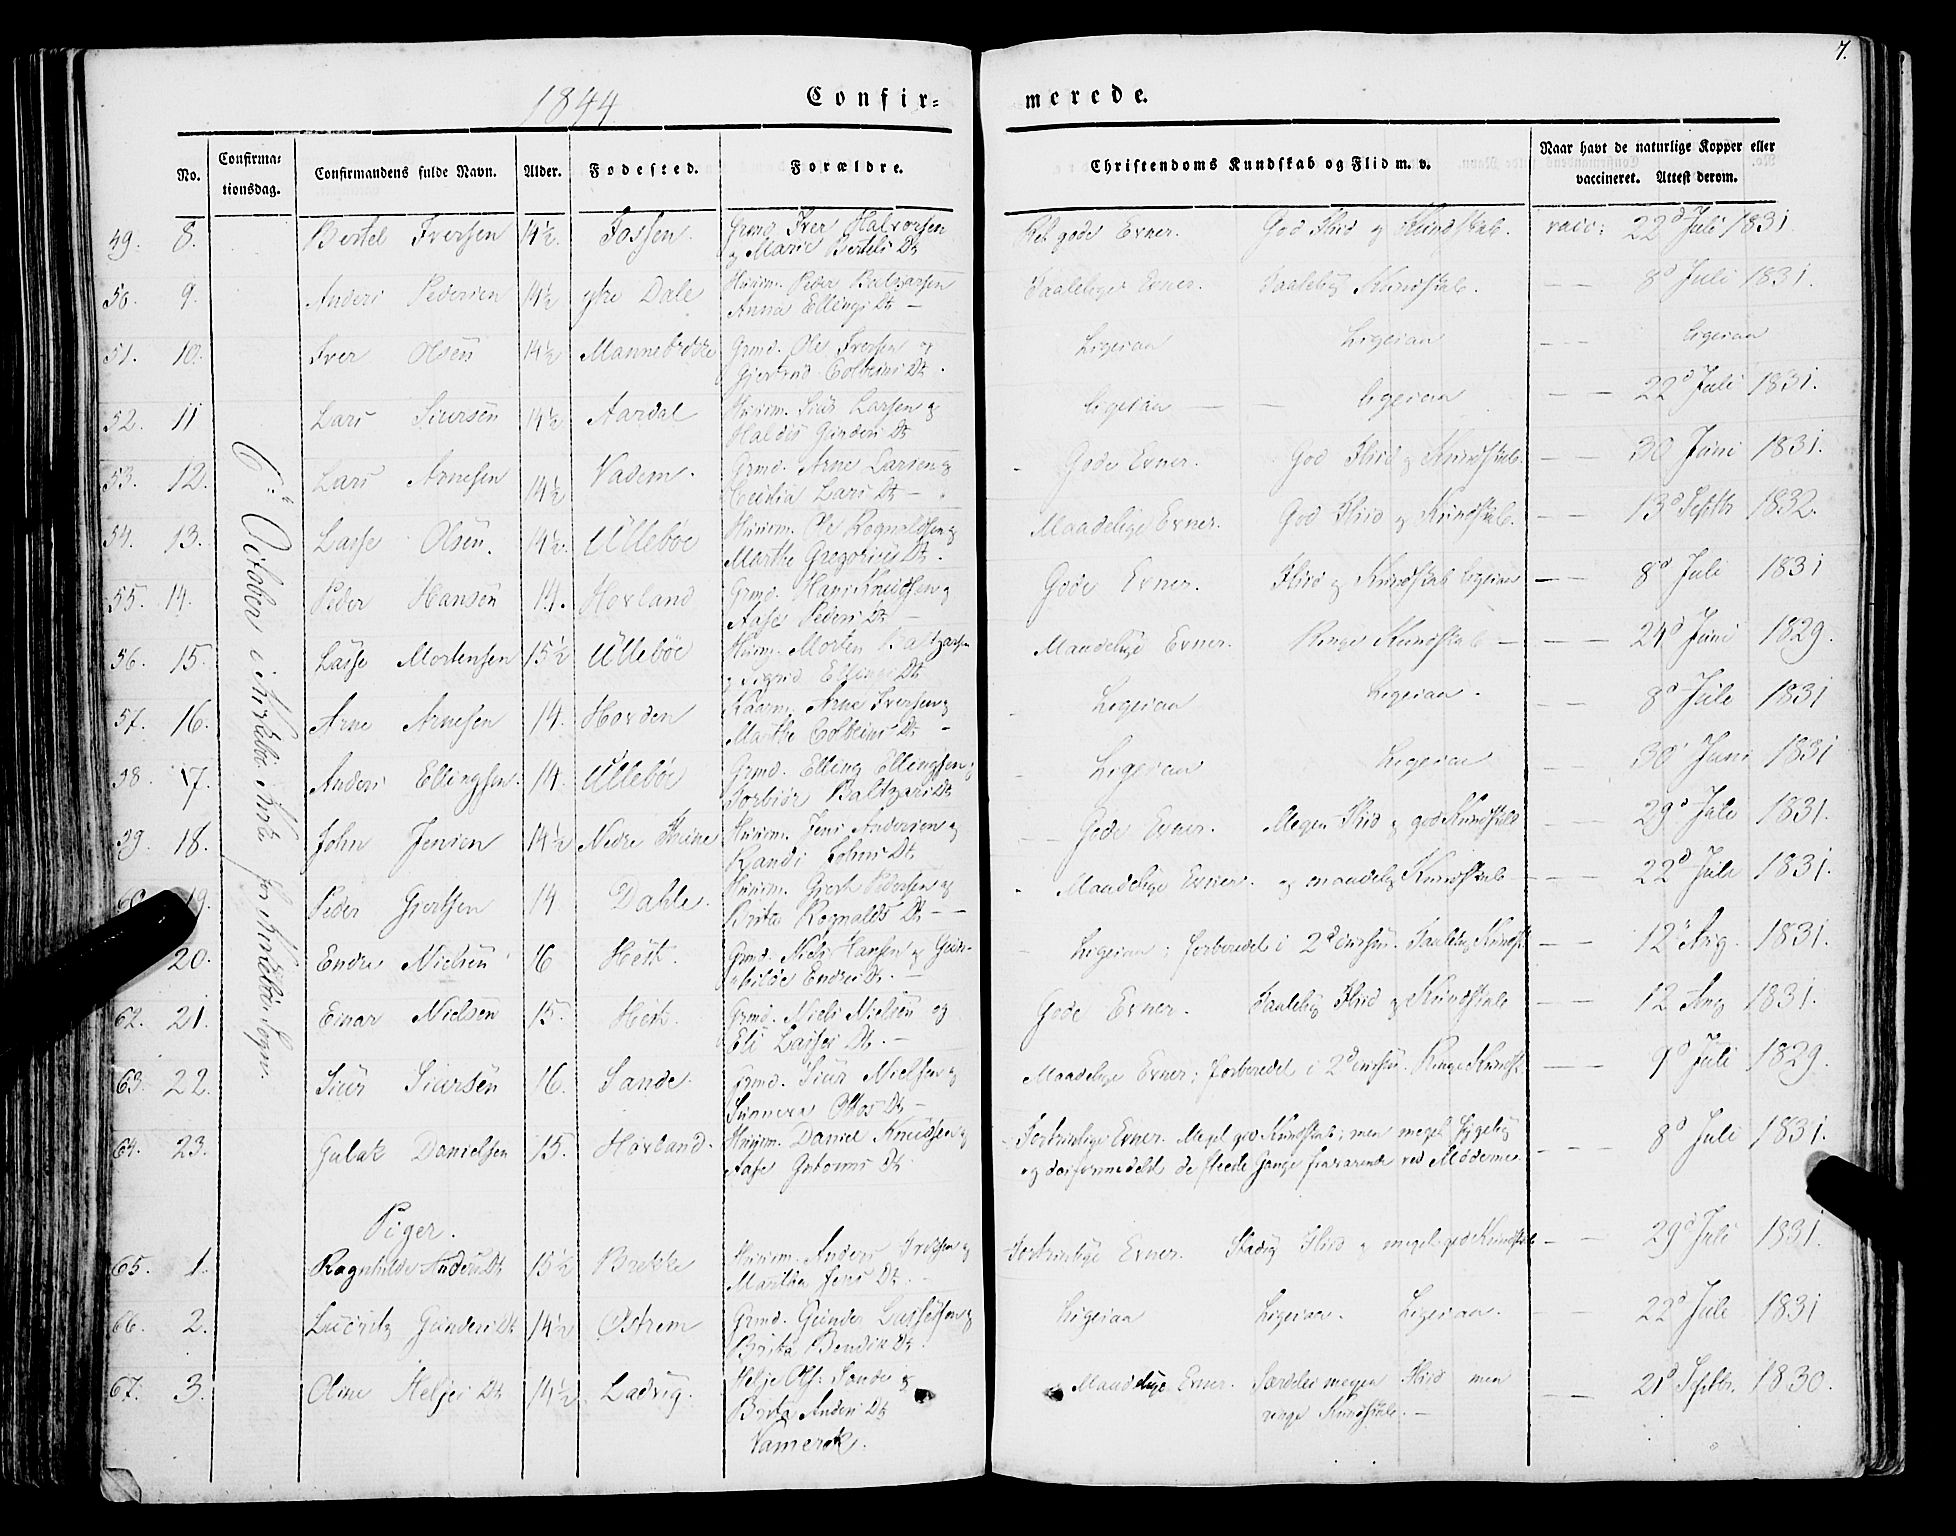 7.
1844
Confir-
merede.
No.
Confirma-
tionsdag.
Confirmandens fulde Navn.
Alder.
Fødested.
Forældre.
Christendoms Kundskab og Flid m. v.
Naar havt de naturlige Kopper eller
vaccineret. Attest derom.
6te October i Kirkebø Kirke for Kirkebø Sogn.
49. 8. Bertel Iversen 14½. Fossen. Grmd Iver Halvorsen
og Marie Bertels Dt
gode Evner. God Flid og Kundskab. vacc: 22d Juli 1831
50. 9. Anders Pedersen 14½ ytre Dale Huusm. Peder Baltzarsen
Anna Ellings Dt —
Taalelige Evner. Taalelig Kundskab. — — 8d Juli 1831.
51. 10. Iver Olsen 14½ Grmd. Ole Iversen og
Gjertrud Colbeins Dt.
Ligesaa Ligesaa — — ligesaa
52. 11 Lars Siursen 14½ Aardal Huusm. Siur Larsen og
Haldis Gunders Dt
ligesaa — — ligesaa — — 22d Juli 1831.
53. 12. Lars Arnesen 14½ Vadem. Grmd. Arne Larsen og
Cecilia Lars Dt —
Gode Evner. God Flid og Kundskab. — — 30 Juni 1831.
54. 13. Lasse Olsen. 14½. Ullebøe Huusm. Ole Rognaldsen og
Marthe Gregorius Dt.
Maadelige Evner. God Flid og Kundskab. — — 13d Septbr 1832.
55. 14. Peder Hansen 14. Hovland Grmd. Hans Knudsen og
Aase Peders Dt —
Gode Evner. Flid og Kundskab ligesaa — — 8d Juli 1831
56. 15. Lasse Mortensen 15½ Ullebøe Morten Baltzarsen
og Sigrid Ellings Dt
Maadelige Evner. Ringe Kundskab — — — 24d Juni 1829.
57. 16. Arne Arnesen 14. Hovden Arne Iversen og
Marthe Colbeins Dt —
Ligesaa Ligesaa. — — 8d Juli 1831
58. 17. Anders Ellingsen. 14. Ullebøe Grmd. Elling Ellingsen og
Torbiør Baltzars Dt
Ligesaa Ligesaa — — 30 Juni 1831
59. 18. John Jensen 14½ Nedre Huusm. Jens Andersen og
Randi Johns Dt
Gode Evner. Megen Flid og god Kundskab — — 29d Juli 1831.
60. 19. Peder Gjertsen 14 Dahle. Huusm. Gjert Pedersen og
Brita Rognalds Dt — —
Maadelige Evner. og maadelig Kundskab — — 22d Juli 1831.
20. Endre Nielsen 16 Grmd. Niels Hansen og Gun-
hilde Endres Dt. —
Ligesaa; forberedet i 2d Taalelig Kundsk. — — 12 Aug. 1831.
62. 21. Einar Nielsen 15. Grmd. Niels Nielsen og
Eli Lasses Dt. —
Gode Evner. Taalelig Flid og Kundskab — — 12 Aug 1831.
63. 22. Siur Siursen 16. Sande. Grmd. Siur Nielsen og
Sunneva Ottos Dt —
Maadelige Evner; forberedet i 2d Ringe Kundsk. — — 9d Juli 1829.
64. 23. Gulak Danielsen 15. Hovland. Huusm. Daniel Knudsen og
Aase Guttorms Dt
Fortrinlige Evner. Meget god Kundskab; men meget sygelig
og derformedelst de fleste Gange fraværende ved Møderne.
— — 8d Juli 1831.
Piger.
65. 1. Ragnhilde Anders Dt 15½ Brekke Huusm. Anders og
Martha Jens Dt. —
Fortrinlige Evner. Stadig Flid og meget god Kundskab — — 29d Juli 1831.
66. 2. Gunders Dt 14½ Østrem Grmd. Gunder Lassesen og
Brita Bendix Dt.
Ligesaa Ligesaa. Ligesaa. — — 22d Juli 1831
67. 3. Oline Heljes Dt 14½ Ladvig. Helje Ols: Sande og
Brita Anders Dt
Vamerak.
Maadelige Evner. Særdeles megen Flid men
ringe Kundskab. —
— — 21d Septbr. 1830.